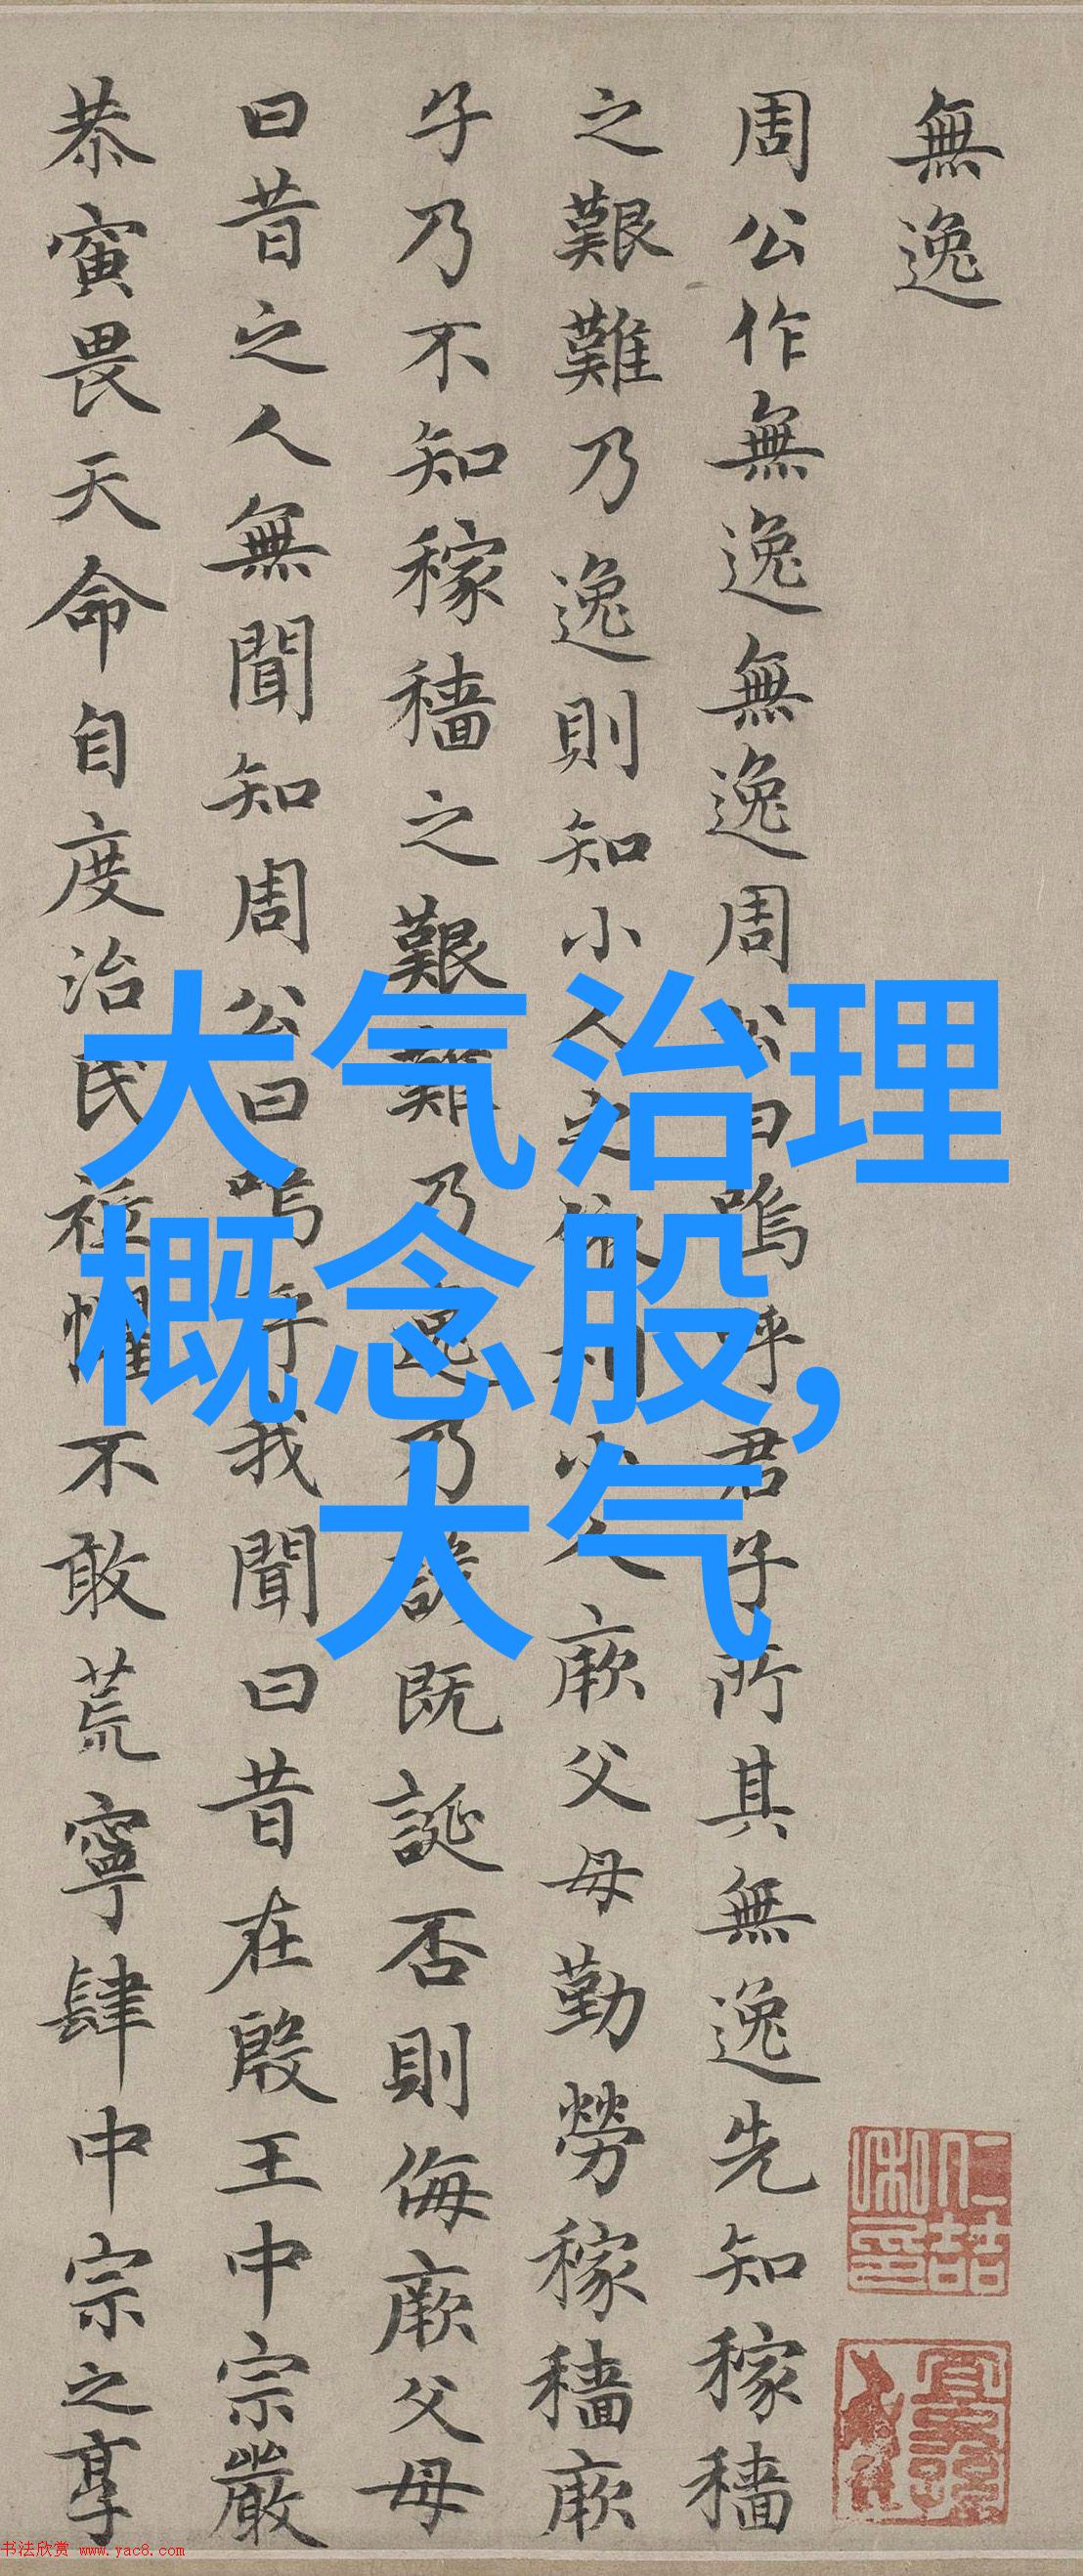 無逸
周公作無逸無逸周公曰嗚呼君子所其無逸先知稼穡
之艱難乃逸則知小人之依相小人厥父母勤勞稼穡厥
子乃不知稼穡之艱難乃逸乃諺既誕否則侮厥父母
曰昔之人無聞知周公曰嗚呼我聞曰昔在殷王中宗嚴
恭寅畏天命自度治民祗懼不敢荒寧肆中宗之享
大气治理
概念股,
大气
书法欣赏 www.yac8.com